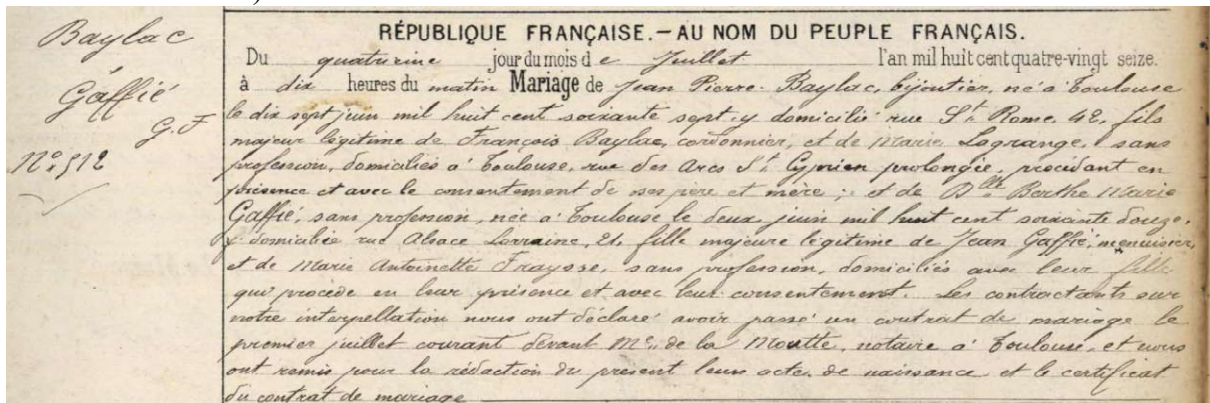 Baylac
Gaffié
G. F
N°. 512
RÉPUBLIQUE FRANÇAISE. – AU NOM DU PEUPLE FRANÇAIS.
Du quatorine jour du mois d e Juillet l'an mil huit cent quatre-vingt seize.
à dix heures du matin Mariage de Jean Pierre Baylac, bijoutier, né à Toulouse
le dix sept juin mil huit cent soixante sept, y domicilié rue St. Rome, 42, fils
majeur légitime de François Baylac, cordonnier, et de Marie Lagrange, sans
profession, domiciliés à Toulouse, rue des Arcs St. Cyprien prolongée, procédant en
présence et avec le consentement de ses père et mère ; et de Dlle. Berthe Marie
Gaffié, sans profession, née à Toulouse le deux juin mil huit cent soixante douze,
y domiciliée rue Alsace Lorraine, 21, fille majeure légitime de Jean Gaffié, menuisier,
et de Marie Antoinette Fraysse, sans profession, domiciliés avec leur fille
qui procède en leur présence et avec leur consentement. Les contractants sur
notre interpellation nous ont déclaré avoir passé un contrat de mariage le
premier juillet courant devant Me. de la Moutte, notaire à Toulouse, et nous
ont remis pour la rédaction du présent leurs actes de naissance et le certificat
du contrat de mariage